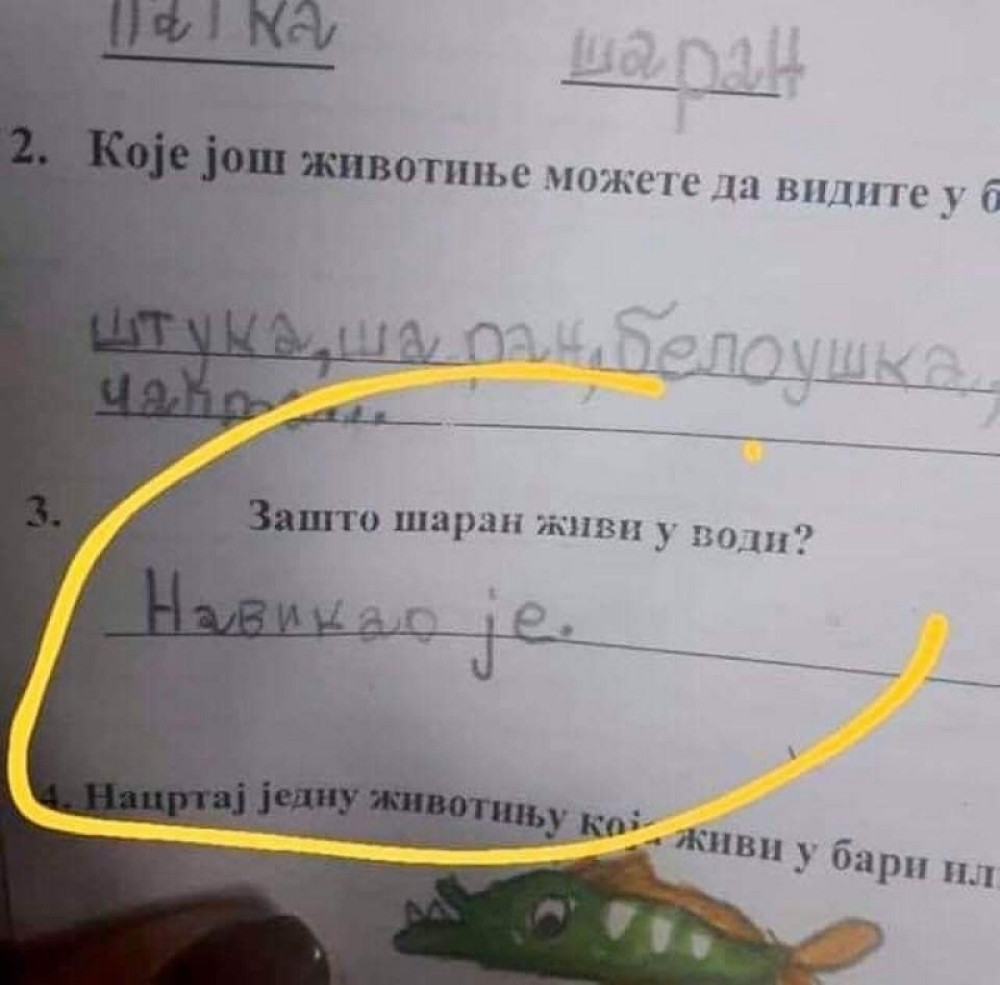 патка шаран
2. Које још животиње можете да видите у б
штука, шаран, белоушка,
чапља...
3. Зашто шаран живи у води?
Навикао је.
4. Нацртај једну животињу која живи у бари или